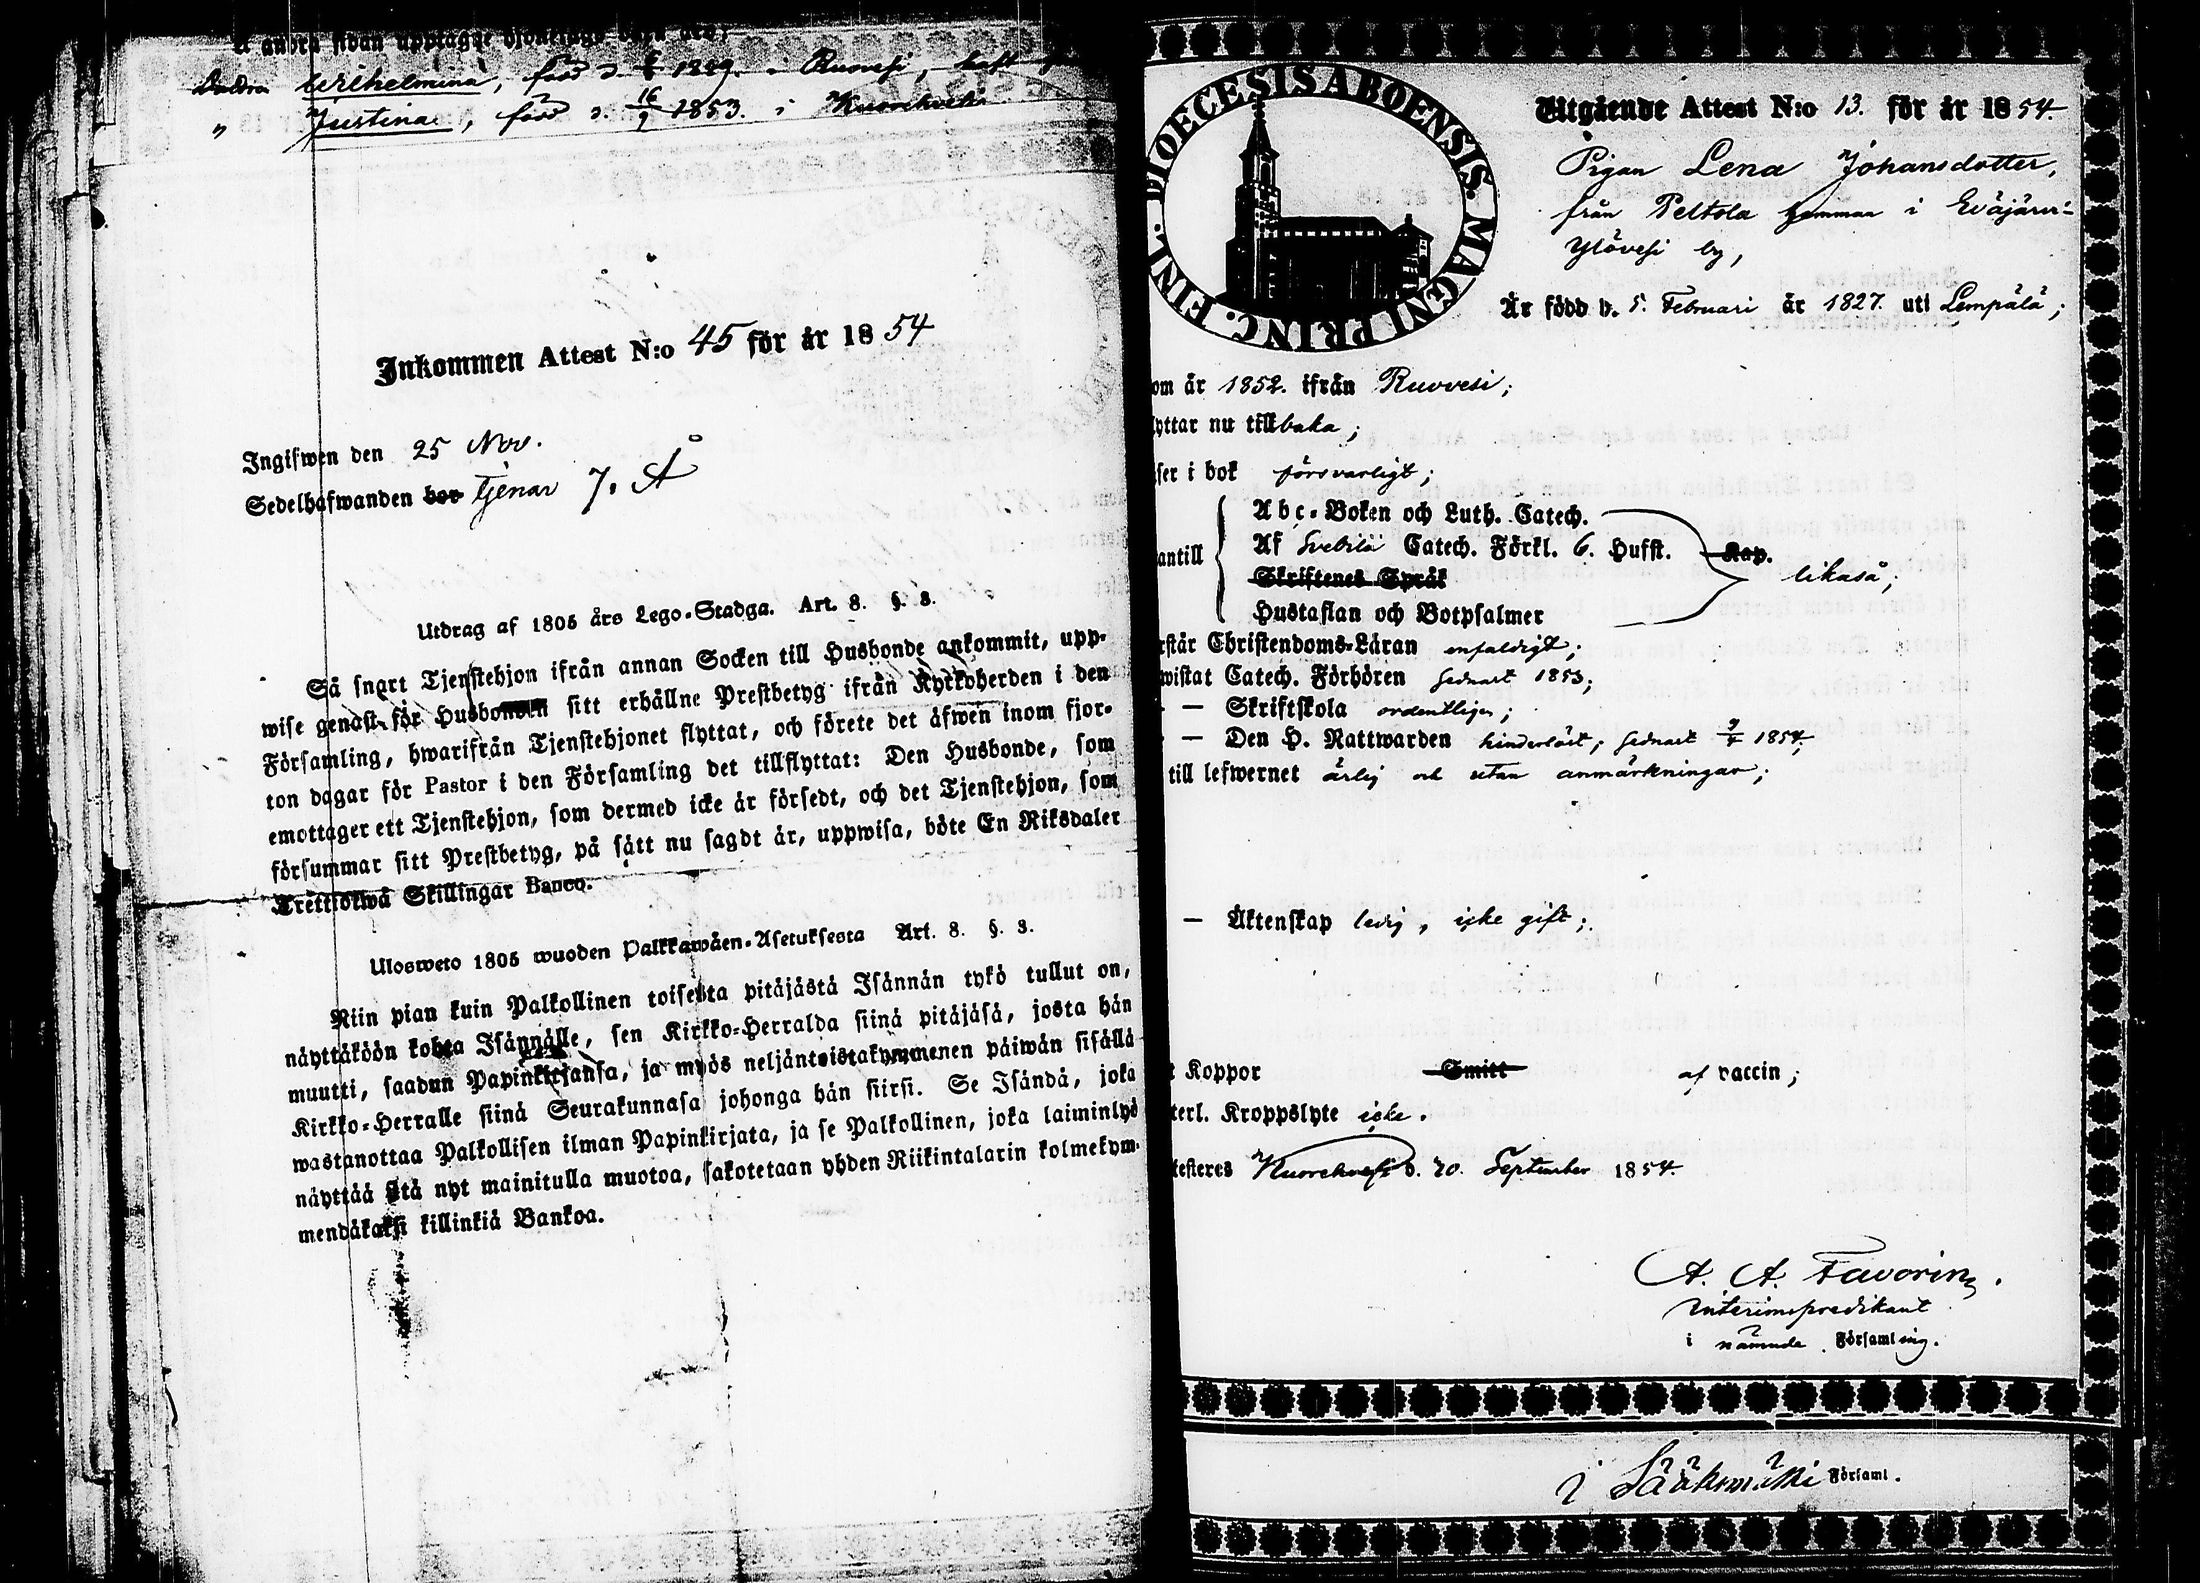 å andra sidan upptagne hjonelags barn äro;
Dottren Wilhelmina, född d. 1849. i Ruovesi, haft
" Justina, född d. 16/9 1853. i Kuorehvesi
Inkommen Attest N:o 45 för år 1854
Ingifwen den 25 Nov.
Sedelhafwanden bor tjenar J. Å
Utdrag af 1805 års Lego-Stadga. Art. 8. §. 3.
Så snart Tjenstehjon ifrån annan Socken till Husbonde ankommit, upp-
wise genast för Husbonden sitt erhållne Prestbetyg ifrån Kyrkoherden i den
Församling, hwarifrån Tjenstehjonet flyttat, och förete det äfwen inom fjor-
ton dagar för Pastor i den Församling det tillflyttat: Den Husbonde, som
emottager ett Tjenstehjon, som dermed icke är försedt, och det Tjenstehjon, som
försummar sitt Prestbetyg, på sätt nu sagdt är, uppwisa, böte En Riksdaler
Trettiotwå Skillingar Banco.
Ulosweto 1805 wuoden Palkkawäen-Asetuksesta Art. 8. §. 3.
Niin pian kuin Palkollinen toisesta pitäjästä Isännän tykö tullut on,
näyttäköön kohta Isännälle, sen Kirkko-Herralda siinä pitäjäsä, josta hän
muutti, saadun Papinkirjansa, ja myös neljäntoistakymmenen päiwän sisällä
Kirkko-Herralle siinä Seurakunnasa johonga hän siirsi. Se Isändä, joka
wastanottaa Palkollisen ilman Papinkirjata, ja se Palkollinen, joka laiminlyö
näyttää sitä nyt mainitulla muotoa, sakotetaan yhden Riikintalarin kolmekym-
mendäkaksi killinkiä Bankoa.
DIOECESIS ABOENSIS. MAGNI PRINC. FINL.
Utgående Attest N:o 13. för år 1854.
Pigan Lena Johansdotter,
från Peltola hemman i Eväjärvi-
Ylövesi by,
Är född d. 5. Februari år 1827. uti Lempälä;
om år 1852. ifrån Ruovesi;
lyttar nu tillbaka;
ser i bok försvarligt;
antill
Abc-Boken och Luth. Catech.
Af Svebilii Catech. Förkl. 6. Hufst. Kap.
Skriftenes Språk
Hustaflan och Botpsalmer
likaså;
rstår Christendoms-Läran enfaldigt;
wistat Catech. Förhören sednast 1853;
— Skriftskola ordentligen;
— Den H. Nattwarden hinderlöst, sednast 9/4 1854;
till lefwernet ärlig och utan anmärkningar;
— Äktenskap ledig, icke gift;
t Koppor Smitt af vaccin;
terl. Kroppslyte icke.
testeres Kuorehvesi d. 20. September 1854.
A. A. Favorin.
Interimspredikant
i nämnde Församling.
i Sääksmäki Församl.